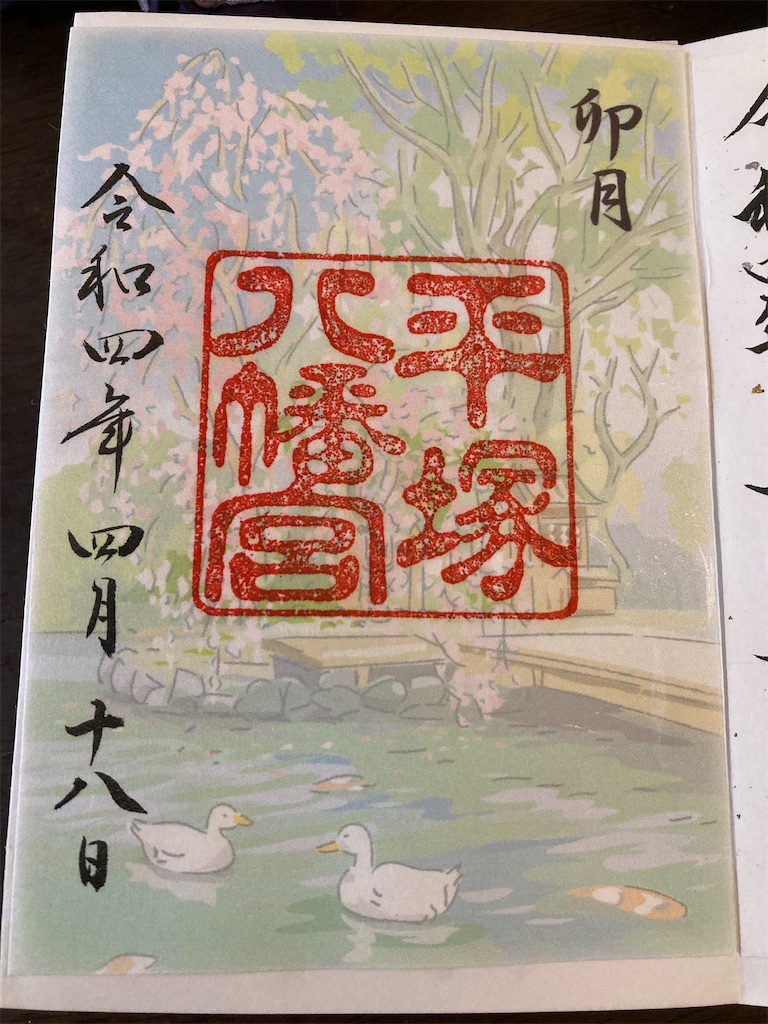 卯月
平塚
八幡宮
令和四年四月十八日